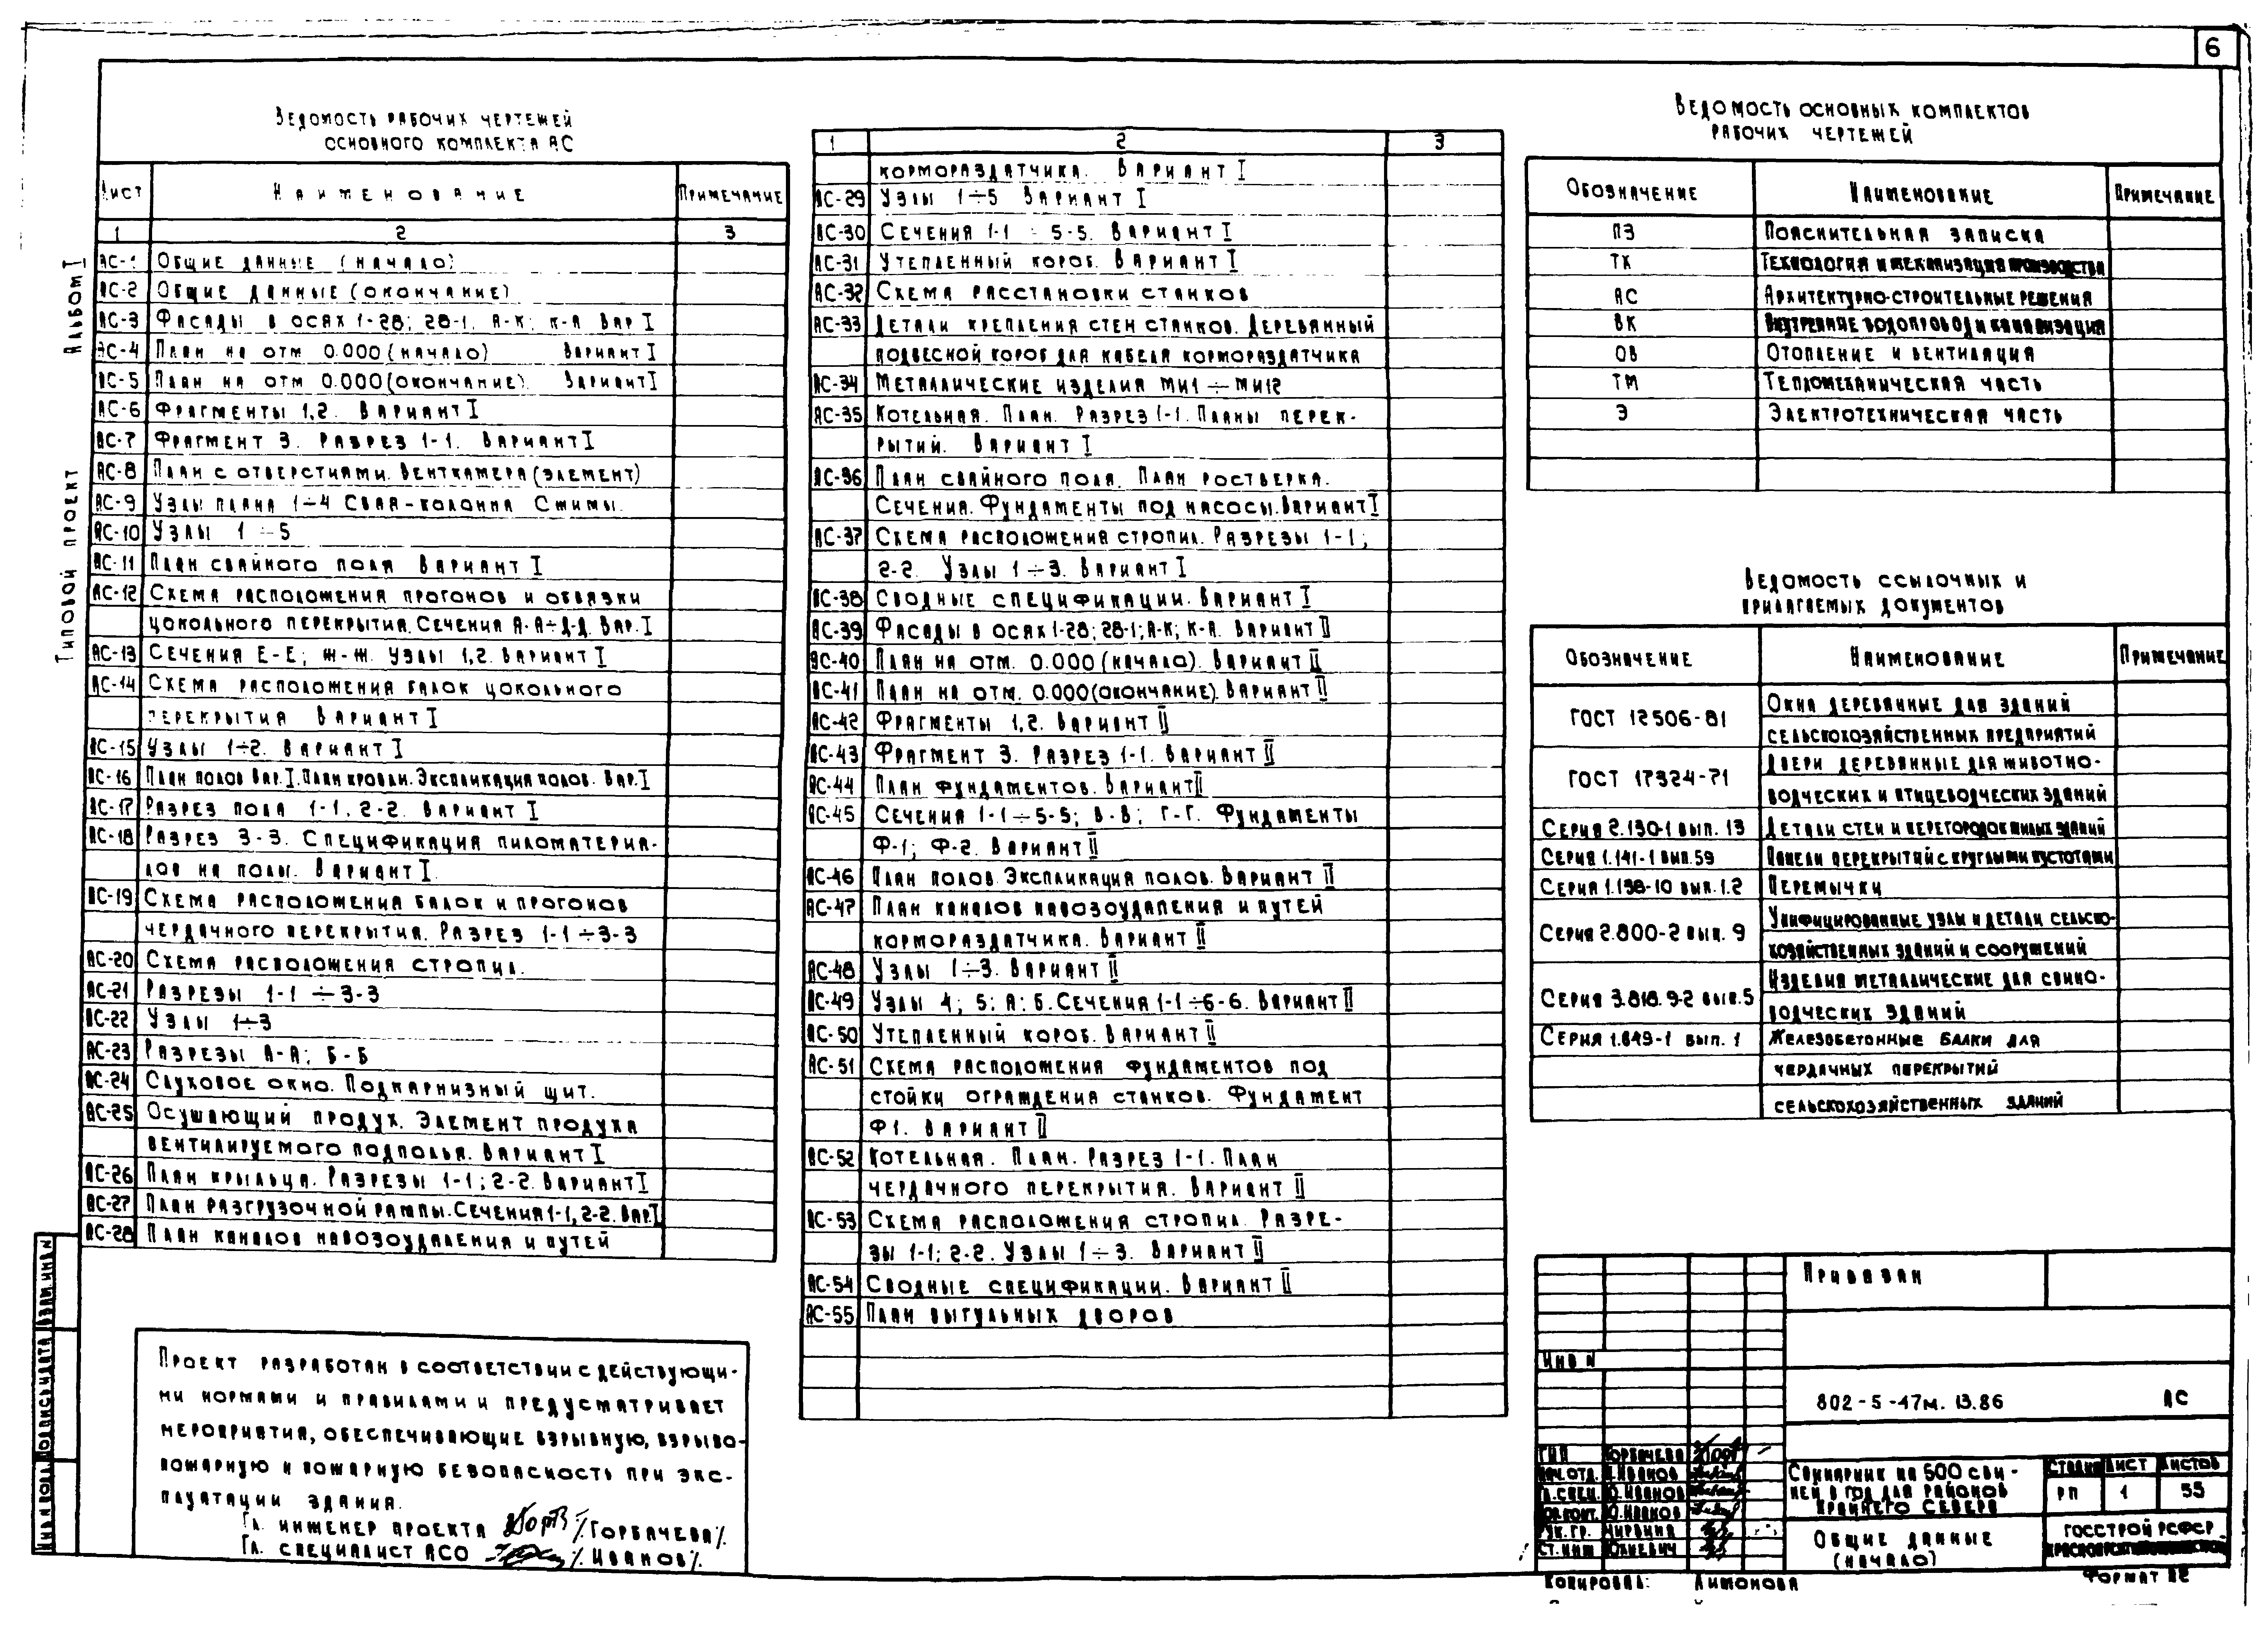 6
Альбом I
Типовой проект
Ведомость рабочих чертежей
основного комплекта АС
Лист Наименование Примечание
1 2 3
АС-1 Общие данные (начало)
АС-2 Общие данные (окончание)
АС-3 Фасады в осях 1-28; 28-1, А-К; К-А Вар I
АС-4 План на отм 0.000 (начало) Вариант I
АС-5 План на отм 0.000 (окончание) Вариант I
АС-6 Фрагменты 1,2. Вариант I
АС-7 Фрагмент 3. Разрез 1-1. Вариант I
АС-8 План с отверстиями. Венткамера (элемент)
АС-9 Узлы плана 1÷4 Свая-колонна Сжимы.
АС-10 Узлы 1÷5
АС-11 План свайного поля Вариант I
АС-12 Схема расположения прогонов и обвязки
цокольного перекрытия. Сечения А-А÷Д-Д. Вар. I
АС-13 Сечения Е-Е; Ж-Ж. Узлы 1,2. Вариант I
АС-14 Схема расположения балок цокольного
перекрытия Вариант I
АС-15 Узлы 1÷2. Вариант I
АС-16 План полов Вар. I. План кровли. Экспликация полов. Вар. I
АС-17 Разрез пола 1-1, 2-2. Вариант I
АС-18 Разрез 3-3. Спецификация пиломатериа-
лов на полы. Вариант I.
АС-19 Схема расположения балок и прогонов
чердачного перекрытия. Разрез 1-1÷3-3
АС-20 Схема расположения стропил.
АС-21 Разрезы 1-1÷3-3
АС-22 Узлы 1÷3
АС-23 Разрезы А-А; Б-Б
АС-24 Слуховое окно. Подкарнизный щит.
АС-25 Осушающий продух. Элемент продуха
вентилируемого подполья. Вариант I
АС-26 План крыльца. Разрезы 1-1; 2-2. Вариант I
АС-27 План разгрузочной рампы. Сечения 1-1, 2-2. Вар. I
АС-28 План каналов навозоудаления и путей
Проект разработан в соответствии с действующи-
ми нормами и правилами и предусматривает
мероприятия, обеспечивающие взрывную, взрыво-
пожарную и пожарную безопасность при экс-
плуатации здания.
Гл. инженер проекта /Горбачева/.
Гл. специалист АСО /Иванов/.
Инв N подл. Подпись и дата Взам. инв N
1 2 3
кормораздатчика. Вариант I
АС-29 Узлы 1÷5 Вариант I
АС-30 Сечения 1-1÷5-5. Вариант I
АС-31 Утепленный короб. Вариант I
АС-32 Схема расстановки станков
АС-33 Детали крепления стен станков. Деревянный
подвесной короб для кабеля кормораздатчика
АС-34 Металлические изделия МИ1÷МИ12
АС-35 Котельная. План. Разрез 1-1. Планы перек-
рытий. Вариант I
АС-36 План свайного поля. План ростверка.
Сечения. Фундаменты под насосы. Вариант I
АС-37 Схема расположения стропил. Разрезы 1-1;
2-2. Узлы 1÷3. Вариант I
АС-38 Сводные спецификации. Вариант I
АС-39 Фасады в осях 1-28; 28-1; А-К; К-А. Вариант II
АС-40 План на отм. 0.000 (начало). Вариант II
АС-41 План на отм. 0.000 (окончание). Вариант II
АС-42 Фрагменты 1,2. Вариант II
АС-43 Фрагмент 3. Разрез 1-1. Вариант II
АС-44 План фундаментов. Вариант II
АС-45 Сечения 1-1÷5-5; В-В; Г-Г. Фундаменты
Ф-1; Ф-2. Вариант II
АС-46 План полов. Экспликация полов. Вариант II
АС-47 План каналов навозоудаления и путей
кормораздатчика. Вариант II
АС-48 Узлы 1÷3. Вариант II
АС-49 Узлы 4; 5; А; Б. Сечения 1-1÷6-6. Вариант II
АС-50 Утепленный короб. Вариант II
АС-51 Схема расположения фундаментов под
стойки ограждения станков. Фундамент
Ф1. Вариант II
АС-52 Котельная. План. Разрез 1-1. План
чердачного перекрытия. Вариант II
АС-53 Схема расположения стропил. Разре-
зы 1-1; 2-2. Узлы 1÷3. Вариант II
АС-54 Сводные спецификации. Вариант II
АС-55 План выгульных дворов
Ведомость основных комплектов
рабочих чертежей
Обозначение Наименование Примечание
ПЗ Пояснительная записка
ТХ Технология и механизация производства
АС Архитектурно-строительные решения
ВК Внутренние водопровод и канализация
ОВ Отопление и вентиляция
ТМ Тепломеханическая часть
Э Электротехническая часть
Ведомость ссылочных и
прилагаемых документов
Обозначение Наименование Примечание
ГОСТ 12506-81 Окна деревянные для зданий
сельскохозяйственных предприятий
ГОСТ 17324-71 Двери деревянные для животно-
водческих и птицеводческих зданий
Серия 2.130-1 вып. 13 Детали стен и перегородок жилых зданий
Серия 1.141-1 вып. 59 Панели перекрытий с круглыми пустотами
Серия 1.138-10 вып. 1.2 Перемычки
Серия 2.800-2 вып. 9 Унифицированные узлы и детали сельско-
хозяйственных зданий и сооружений
Серия 3.818.9-2 вып. 5 Изделия металлические для свино-
водческих зданий
Серия 1.849-1 вып. 1 Железобетонные балки для
чердачных перекрытий
сельскохозяйственных зданий
Привязан
Инв N
802-5-47м. 13.86 АС
ГИП Горбачева
Нач. отд. Иванов
Гл. спец. Ю. Иванов
Ю. Иванов
Рук. гр. Чирвина
Ст. инж Юхневич
Свинарник на 500 сви-
ней в год для районов
Крайнего Севера
Стадия Лист Листов
РП 1 55
Общие данные
(начало)
Госстрой РСФСР
Копировал: Лимонова
Формат А2